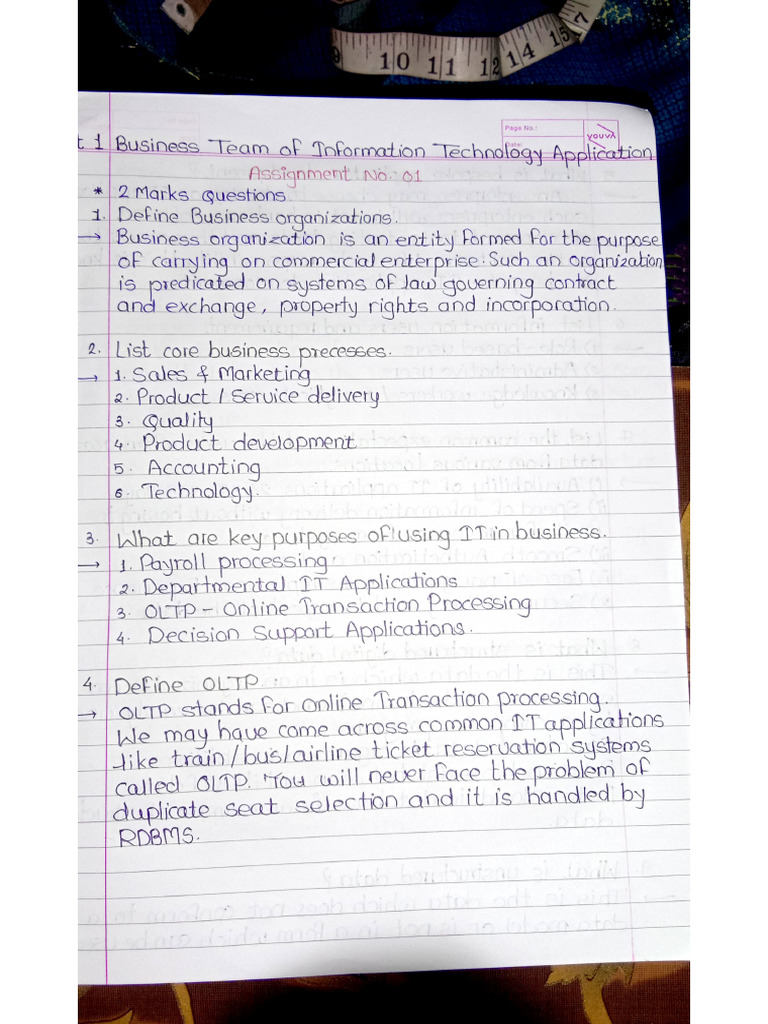 9 10 11 12 14 15 17
Page No.:
Date:
YOUVA
t 1 Business Team of Information Technology Application
Assignment No. 01
* 2 Marks Questions
1. Define Business organizations.
→ Business organization is an entity formed for the purpose
of carrying on commercial enterprise. Such an organization
is predicated on systems of law governing contract
and exchange, property rights and incorporation.
2. List core business precesses.
→ 1. Sales & Marketing
2. Product / Service delivery
3. Quality
4. Product development
5. Accounting
6. Technology.
3. What are key purposes of using IT in business.
→ 1. Payroll processing
2. Departmental IT Applications
3. OLTP - Online Transaction Processing
4. Decision Support Applications.
4. Define OLTP.
→ OLTP stands for Online Transaction processing.
We may have come across common IT applications
like train/bus/airline ticket reservation systems
called OLTP. You will never face the problem of
duplicate seat selection and it is handled by
RDBMS.